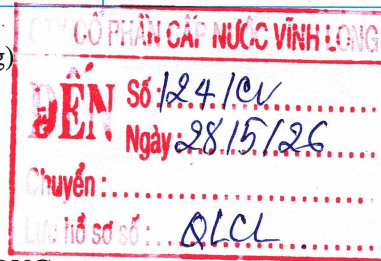 CTY CỔ PHẦN CẤP NƯỚC VĨNH LONG
g)
ĐẾN
Số: 124/CV
Ngày: 28/5/26
Chuyển:
Lưu hồ sơ số: QLCL